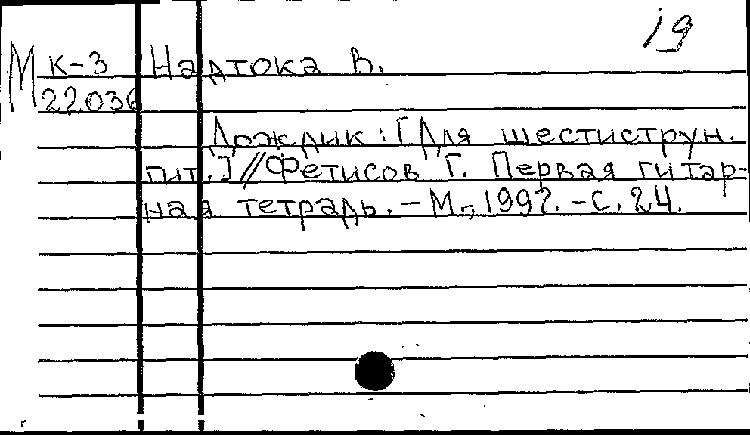 19
М к-3 Надтока В.
22036
Дождик: [Для шестиструн.
гит.] // Фетисов Г. Первая гитар-
ная тетрадь. - М., 1997. - С. 24.